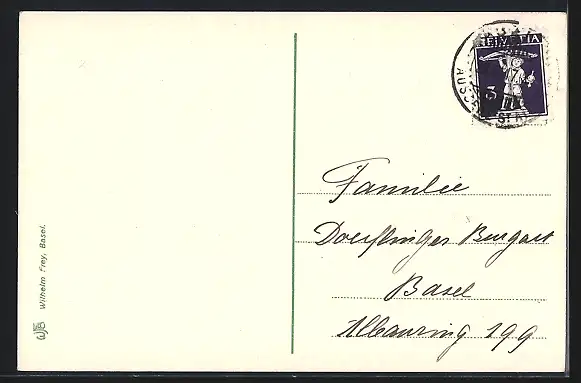 HELVETIA
3
Familie
Doerflinger Burgart
Basel
Albanring 199
Wilhelm Frey, Basel.